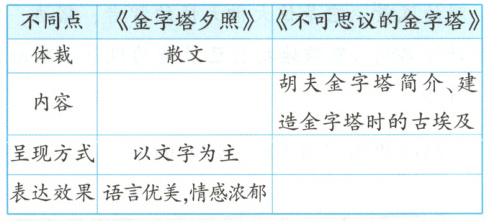 不同点 《金字塔夕照》 《不可思议的金字塔》
体裁 散文
内容 胡夫金字塔简介、建造金字塔时的古埃及
呈现方式 以文字为主
表达效果 语言优美,情感浓郁